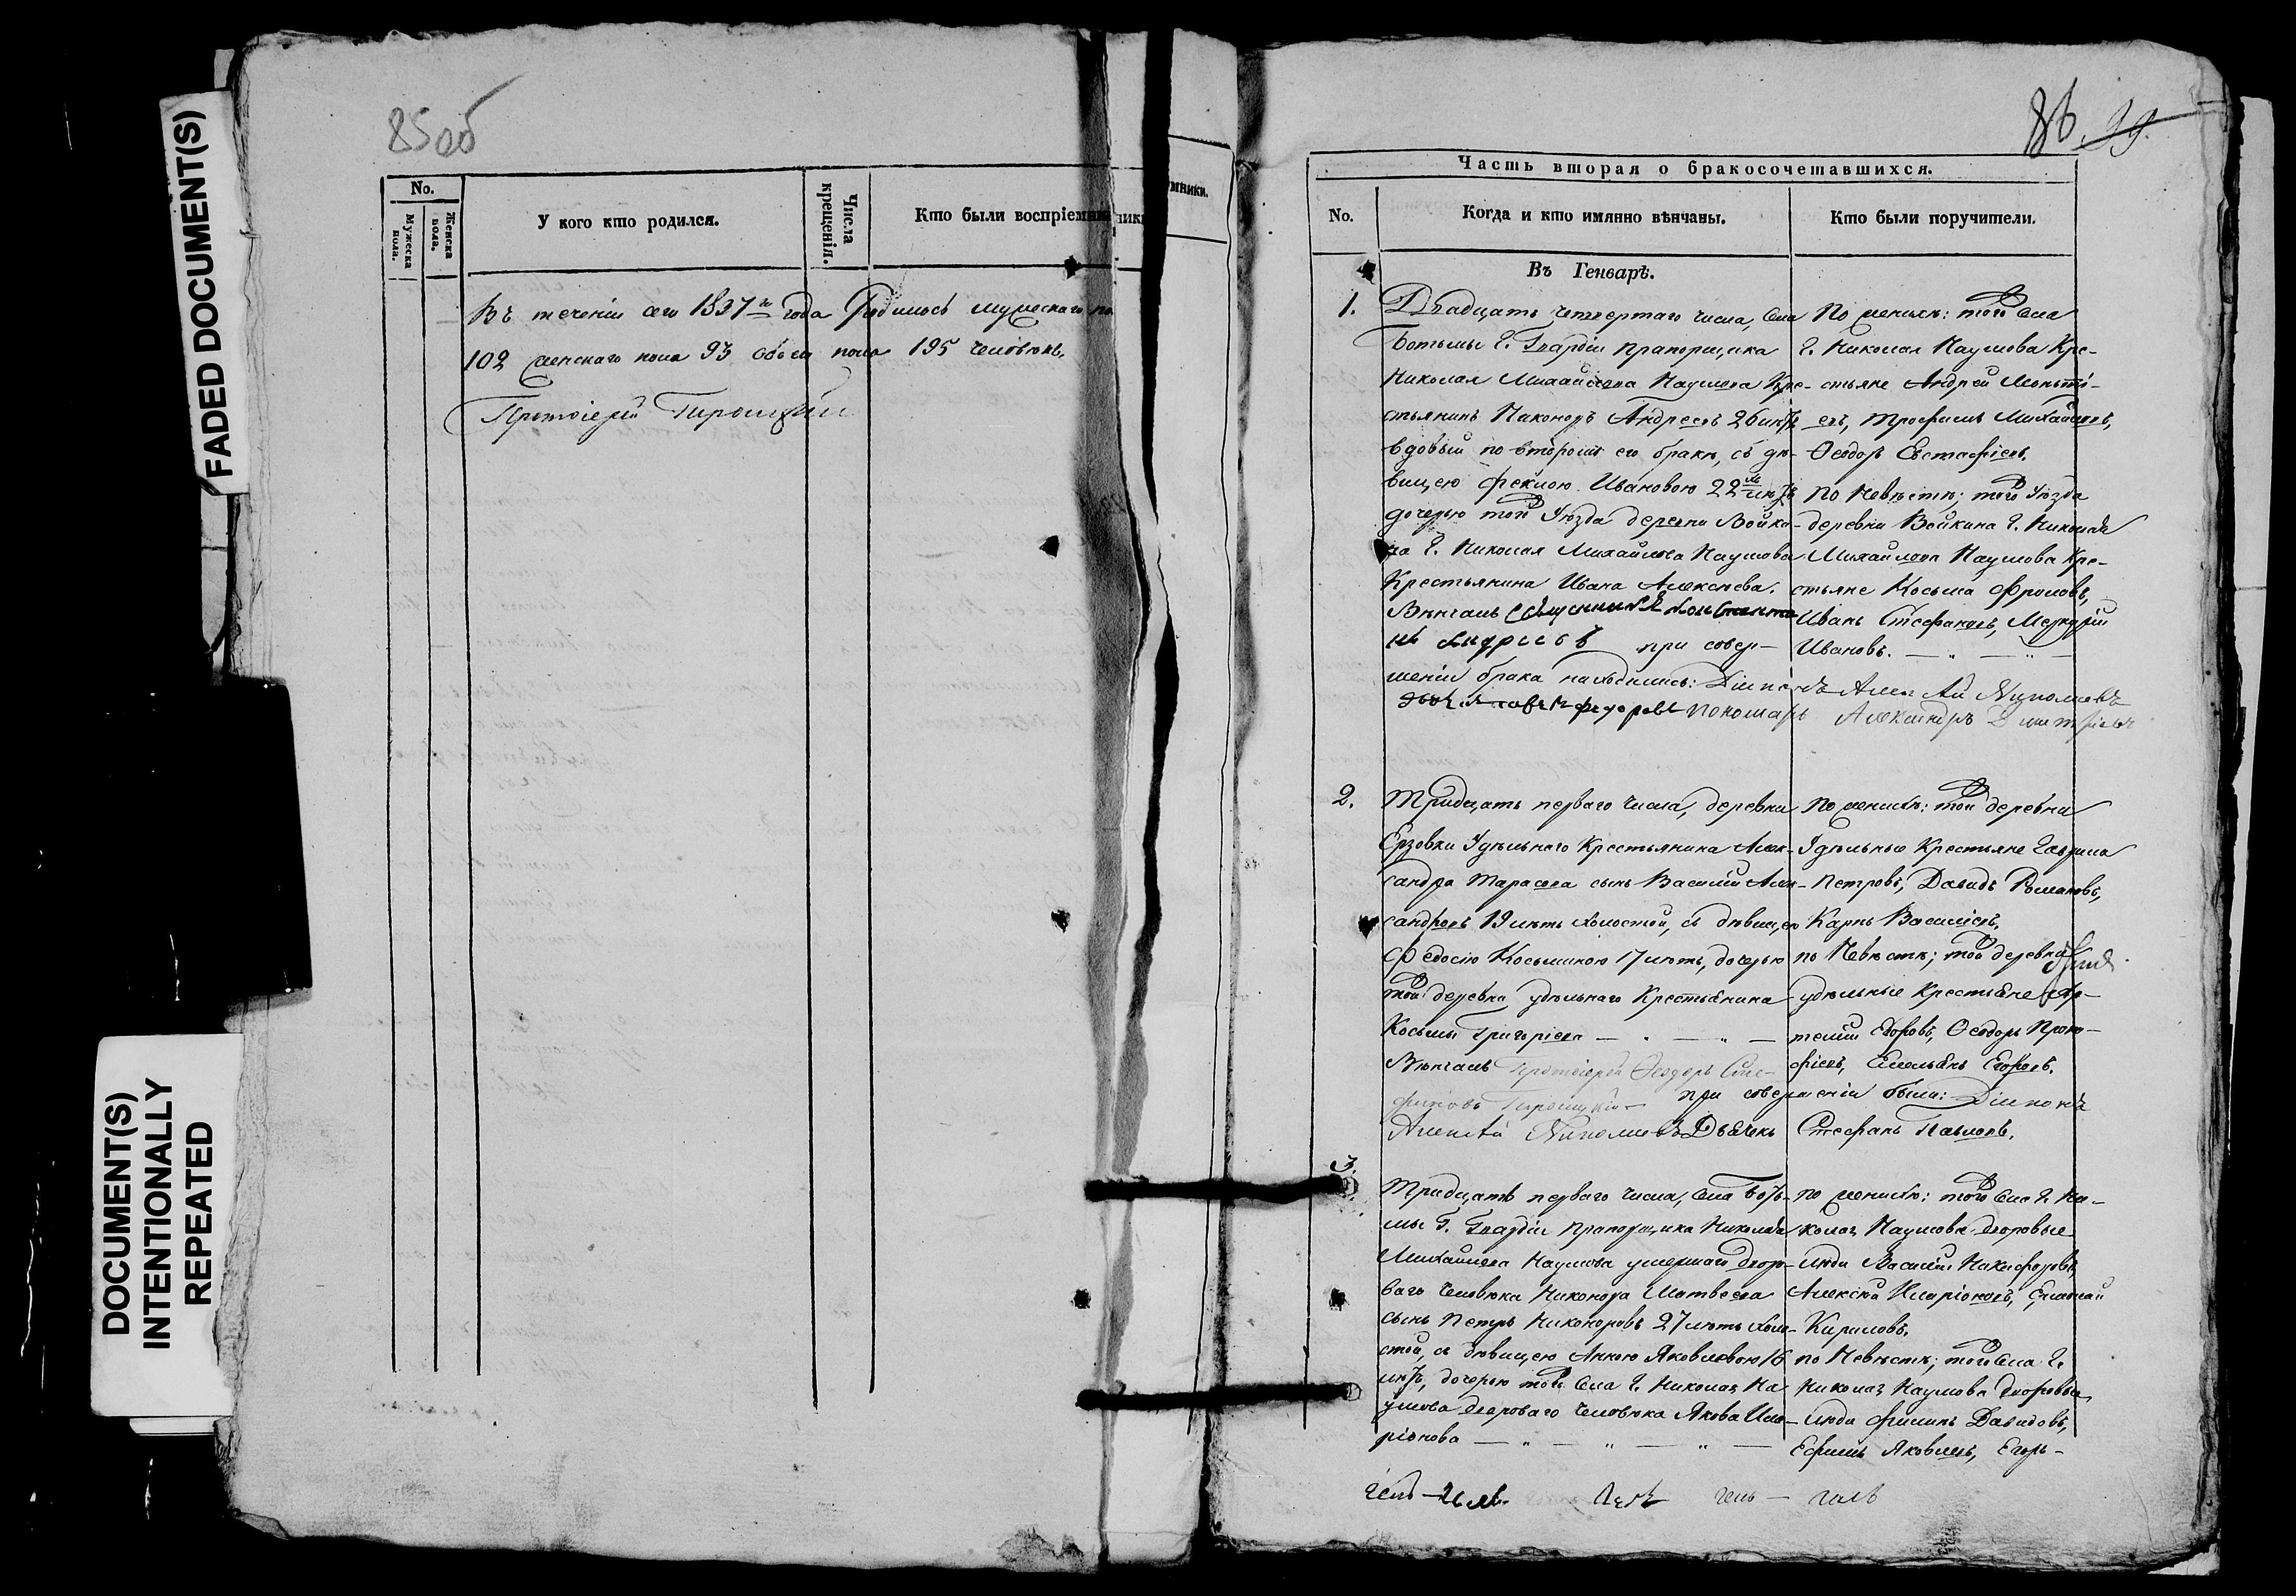 FADED DOCUMENT(S)
DOCUMENT(S)
INTENTIONALLY
REPEATED
85об
No.
Мужеска пола.
Женска пола.
У кого кто родился.
Числа крещенія.
Кто были воспріемники
Въ теченіи сего 1837го года Родилось мужескаго по
102 женскаго пола 93 обоего пола 195 человѣкъ.
Протоіерей
мники.
86. 99.
Часть вторая о бракосочетавшихся.
No.
Когда и кто имянно вѣнчаны.
Кто были поручители.
Въ Генварѣ.
1.
Двадцать четвертаго числа, села
Ботьмы Г. Гвардіи прапорщика
Николая Михайлова Наумова Кре-
стьянинъ Никоноръ Андреевъ 26 лѣтъ
вдовый по второмъ его бракѣ, съ дѣ-
вицею Феклою Ивановою 22 лѣтъ
дочерью того Уѣзда деревни Войки-
на Г. Николая Михайлова Наумова
Крестьянина Ивана Алексѣева.
Вѣнчалъ Священникъ Константи
нъ Андреевъ при совер-
шеніи брака находились: Діаконъ Алексѣй Николаевъ
Федоровъ пономарь Александръ Димитріевъ
По женихѣ: того села
Г. Николая Наумова Кре-
стьяне Андрей
евъ, Трофимъ Михайловъ,
Ѳеодоръ Евстафіевъ.
По Невѣстѣ; того Уѣзда
деревни Войкина Г. Николая
Михайлова Наумова Кре-
стьяне Косьма Фроловъ,
Иванъ Стефановъ, Меркурій
Ивановъ.
2.
Тридцать перваго числа, деревни
Ерзовки Удѣльнаго Крестьянина Алек-
сандра Тарасова сынъ Василій Алек-
сандровъ 19 лѣтъ холостой, съ дѣвицею
Федосіею Косьминою 17 лѣтъ, дочерью
той деревни удѣльнаго Крестьянина
Косьмы Григоріева
Вѣнчалъ Протоіерей Ѳеодоръ
при совершеніи были: Діаконъ
Алексѣй Николаевъ Дьячекъ Стефанъ Павловъ.
По женихѣ: той деревни
Удѣльные Крестьяне Гаврила
Петровъ, Давидъ Романовъ,
Карпъ Василіевъ.
по Невѣстѣ; той деревни
удѣльные Крестьяне Ар-
темій Егоровъ, Ѳеодоръ Проко-
фіевъ, Емельянъ Егоровъ.
3.
Тридцать перваго числа, села Боть-
мы Г. Гвардіи Прапорщика Николая
Михайлова Наумова умершаго дворо-
ваго человѣка Никонора Матвеева
сынъ Петръ Никоноровъ 27 лѣтъ холо-
стой, съ дѣвицею Анною Яковлевою 16
лѣтъ, дочерью того села Г. Николая На
умова двороваго человѣка Якова Ила-
ріонова
по женихѣ: того села Г. Ни-
колая Наумова дворовые
люди Василій Никифоровъ,
Алексѣй Иларіоновъ,
Кириловъ.
по Невѣстѣ; того села Г.
Николая Наумова дворовые
люди Филипъ Давидовъ,
Ефимъ Яковлевъ, Егоръ-